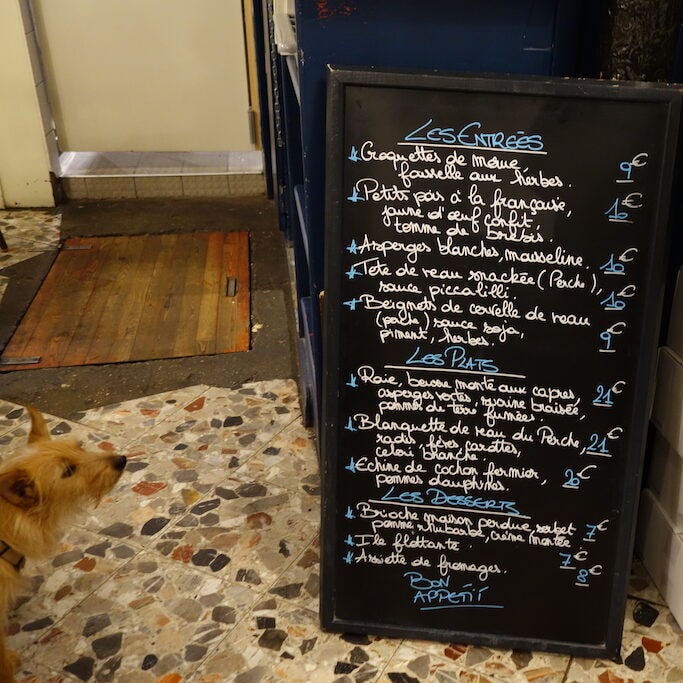 LES ENTRÉES
Croquettes de morue 9€
faisselle aux herbes.
Petits pois à la française, 10€
jaune d'œuf confit,
tomme de brebis.
Asperges blanches, mousseline. 10€
Tete de veau snackée (Perche), 10€
sauce piccalilli.
Beignets de cervelle de veau 9€
(perche) sauce soja,
piment, herbes.
LES PLATS
Raie, beurre monté aux capres, 21€
asperges vertes, braisée,
pommes de terre fumées.
Blanquette de veau du Perche, 21€
radis, fèves, carottes,
celeri branche.
Echine de cochon fermier, 20€
pommes dauphines.
LES DESSERTS
Brioche maison perdue, sorbet 7€
pomme rhubarbe, crème montée
Ile flottante. 7€
Assiette de fromages. 8€
BON
APPETIT